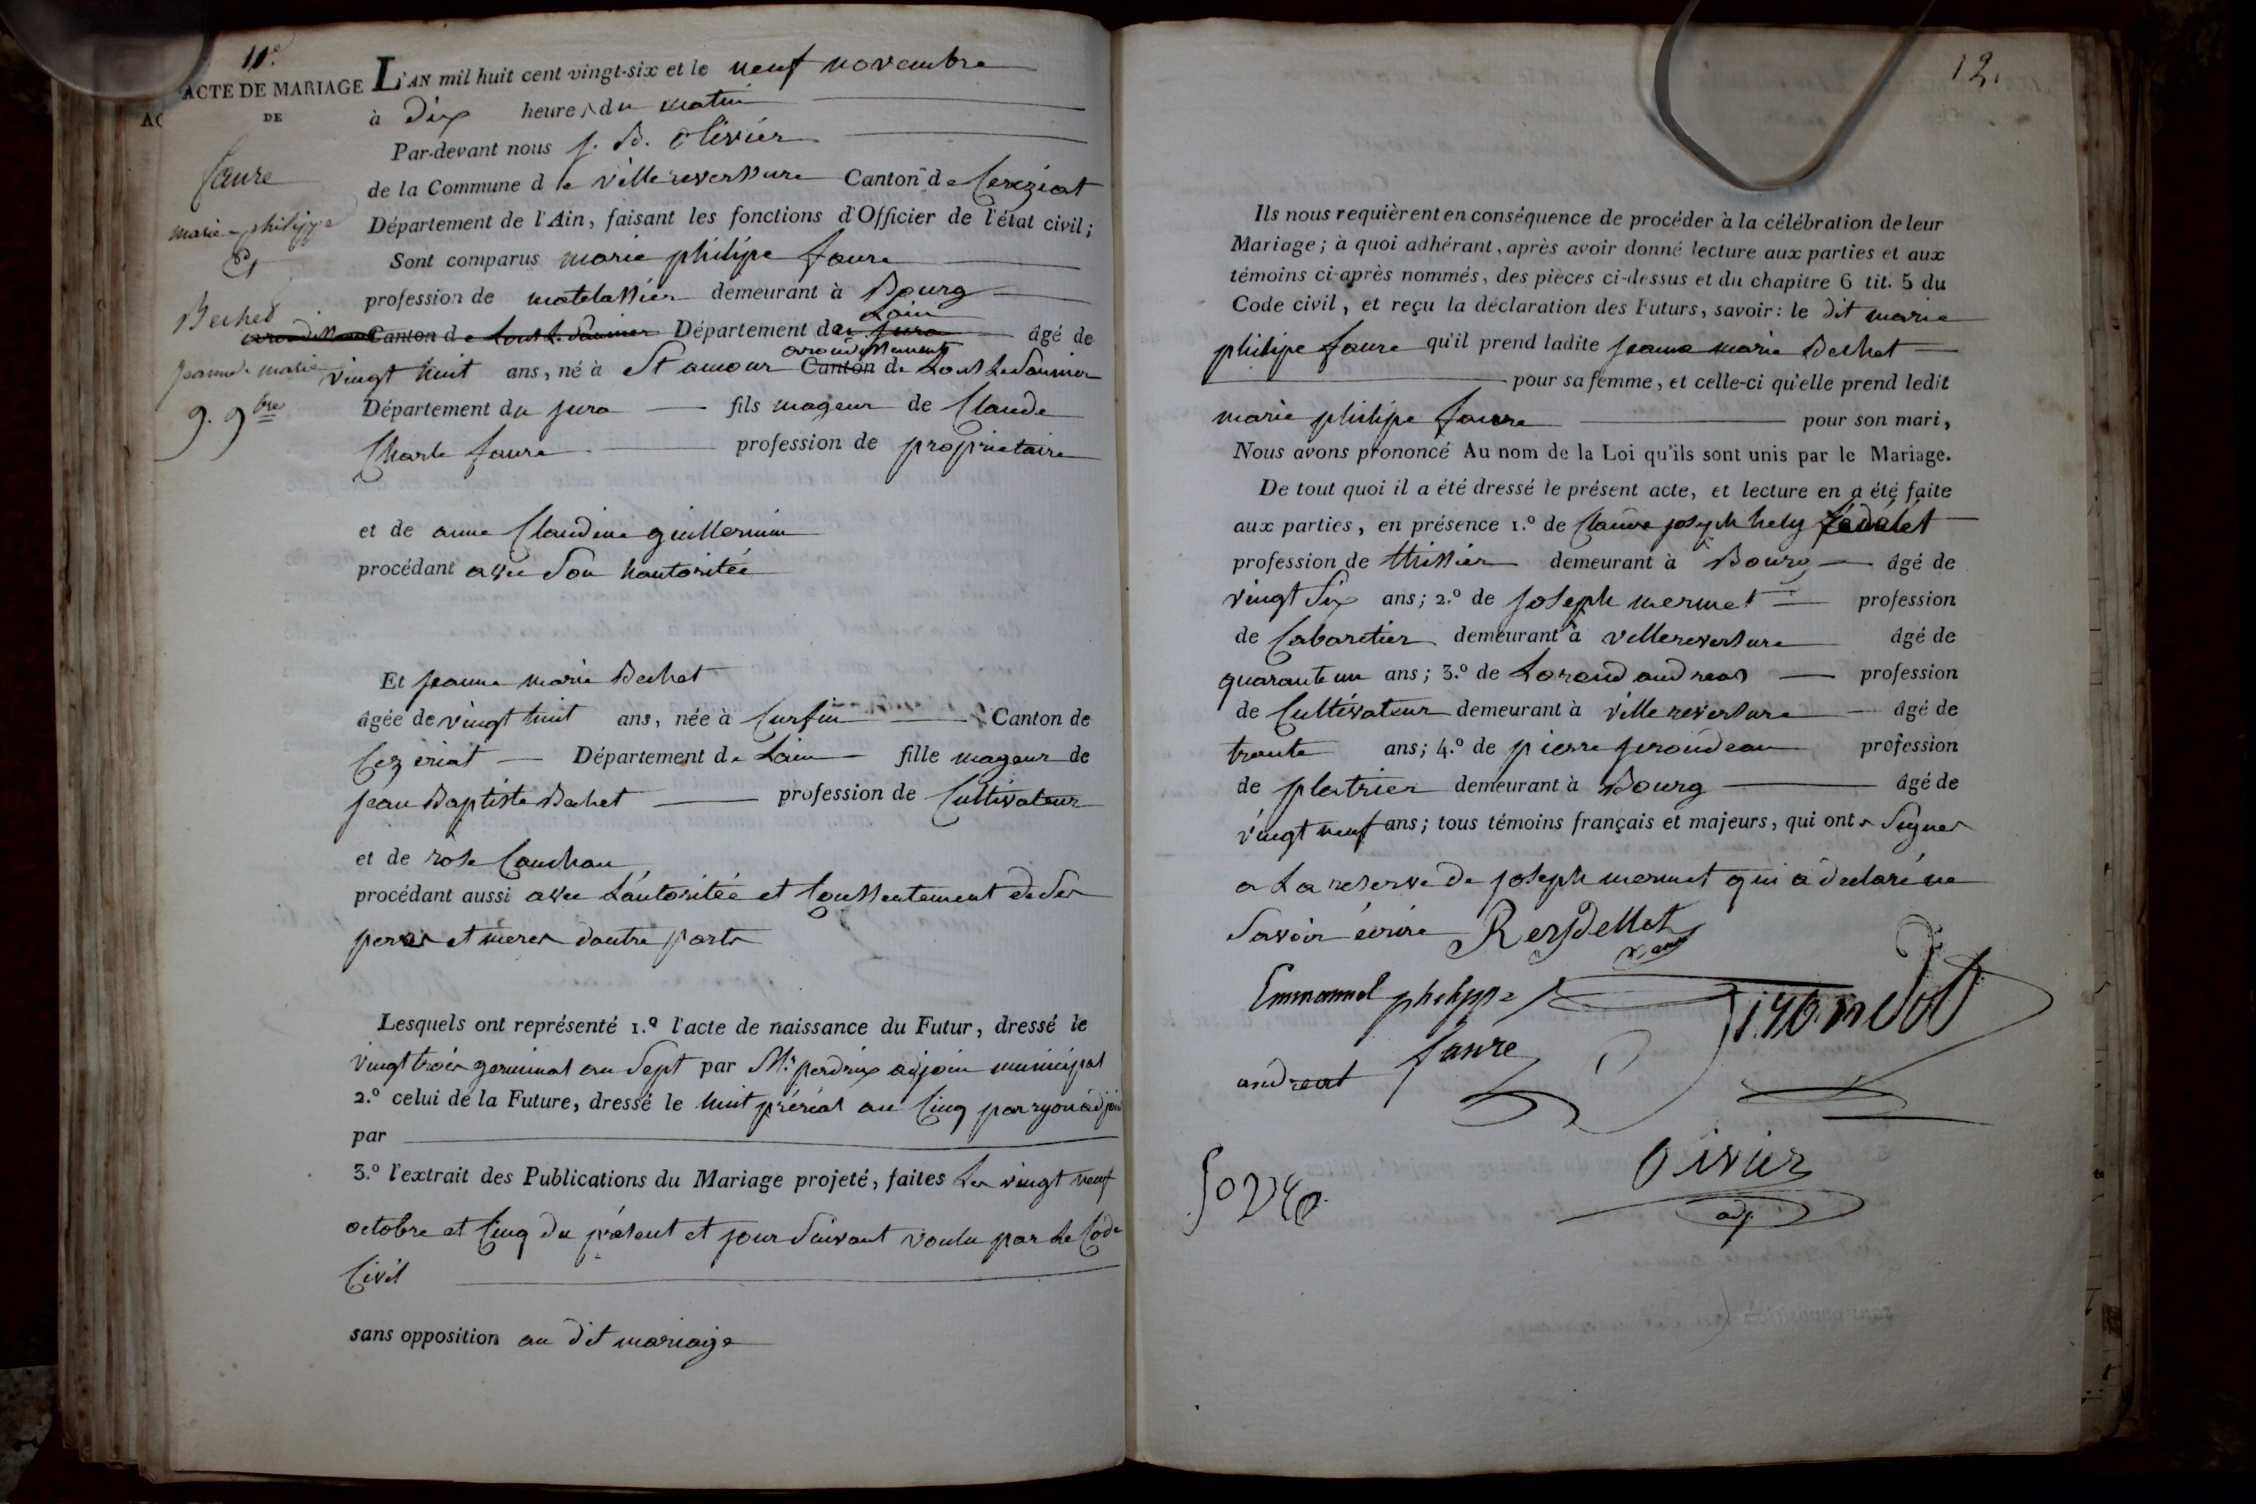 11.e
ACTE DE MARIAGE
DE
faure
marie-philippe
et
Bechet
jeanne marie
9. 9bre
L'AN mil huit cent vingt-six et le neuf novembre
à dix heures du matin
Par-devant nous j. B. Olivier
de la Commune de villereversure Canton de Cerezeiat
Département de l'Ain, faisant les fonctions d'Officier de l'état civil;
Sont comparus marie philipe faure
profession de matelassier demeurant à Bourg
arrondissement Canton de Lons Le Saunier Département de Lain du jura âgé de
vingt huit ans, né à St amour arrondissement Canton de Lons Le Saunier
Département du jura fils mageur de Claude
Charle faure profession de proprietaire
et de anne Claudine guillermin
procédant avec Son hautoritée
Et jeanne marie Bechet
âgée de vingt huit ans, née à Curfin Canton de
Cezeriat Département de Lain fille mageur de
jean Baptiste Bechet profession de Cultivateur
et de rose Cauchan
procédant aussi avec Lautoritée et Conssentement de Ses
peres et meres dautre parts
Lesquels ont représenté 1.º l'acte de naissance du Futur, dressé le
vingt trois germinal an Sept par Mr. perdrix adjoin municipal
2.º celui de la Future, dressé le huit prérial an Cinq par ryon adjoin
par
3.º l'extrait des Publications du Mariage projeté, faites Les vingt neuf
octobre et Cinq du présent et jour Suivant voulu par Le Code
Civil
sans opposition au dit mariage
12.
Ils nous requièrent en conséquence de procéder à la célébration de leur
Mariage; à quoi adhérant, après avoir donné lecture aux parties et aux
témoins ci-après nommés, des pièces ci-dessus et du chapitre 6 tit. 5 du
Code civil, et reçu la déclaration des Futurs, savoir: le dit marie
philipe faure qu'il prend ladite jeanne marie Bechet
pour sa femme, et celle-ci qu'elle prend ledit
marie philipe faure pour son mari,
Nous avons prononcé Au nom de la Loi qu'ils sont unis par le Mariage.
De tout quoi il a été dressé le présent acte, et lecture en a été faite
aux parties, en présence 1.º de Claude joseph
profession de thissier demeurant à Bourg âgé de
vingt Six ans; 2.º de joseph mermet profession
de Cabaretier demeurant à villereversure âgé de
quarante un ans; 3.º de Lorend andreas profession
de Cultivateur demeurant à villereversure âgé de
trante ans; 4.º de pierre jeroudeau profession
de platrier demeurant à Bourg âgé de
vingt neuf ans; tous témoins français et majeurs, qui ont Signer
a La reserve de joseph mermet qui a declaré ne
Savoir écrire
Emmanuel philippe
faure
andreat
Olivier
adj.